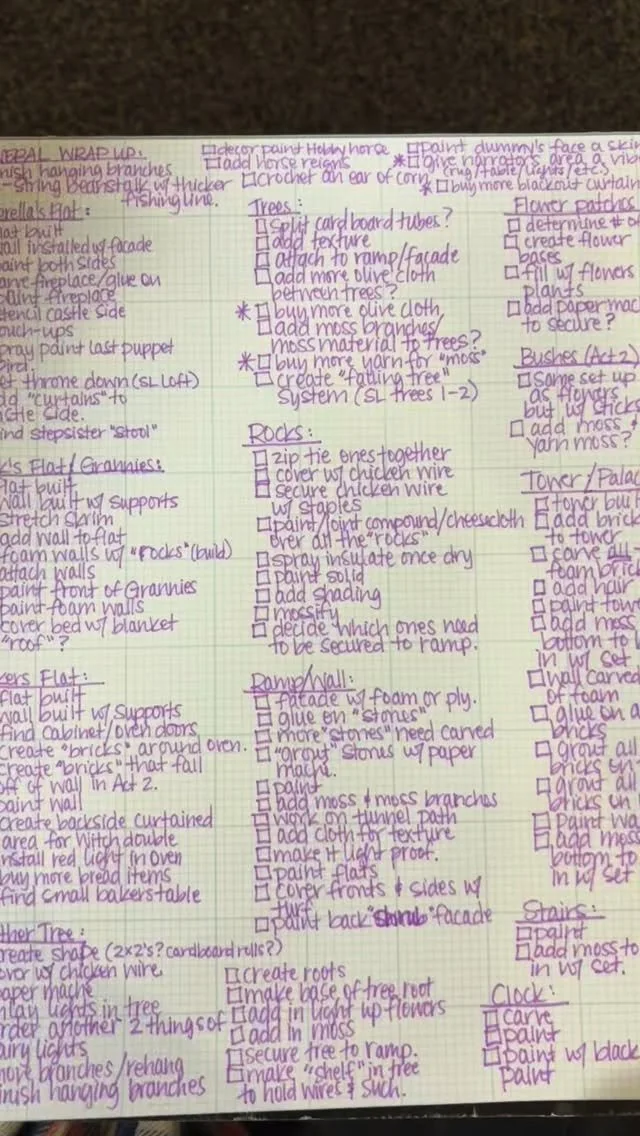 WRAP UP:
nish hanging branches
-string Beanstalk w/ thicker
fishing line.
decor paint Hobby horse
add horse reigns
crochet an ear of corn
paint dummy's face a skin
* give narrators area a vib
(rug/table/lights/etc.)
* buy more blackout curtain
rella's Flat:
lat built
all installed w/ facade
aint both sides
arve fireplace/glue on
paint fireplace
tencil castle side
ouch-ups
pray paint last puppet
bird.
et throne down (SL Left)
dd "curtains" to
stle side.
ind stepsister "stool"
k's Flat/Grannies:
Flat built
wall built w/ supports
stretch skrim
add wall to flat
foam walls w/ "rocks" (build)
attach walls
paint front of Grannies
paint foam walls
cover bed w/ blanket
"roof"?
kers Flat:
flat built
wall built w/ supports
find cabinet/oven doors
create "bricks" around oven.
create "bricks" that fall
off of wall in Act 2.
paint wall
create backside curtained
area for Witch double
install red light in oven
buy more bread items
find small bakers table
ther Tree:
reate shape (2x2's? cardboard rolls?)
over w/ chicken wire
aper mache
nlay lights in tree
rder another 2 things of
airy lights
more branches/rehang
inish hanging branches
Trees:
split cardboard tubes?
add texture
attach to ramp/façade
add more olive cloth
between trees?
* buy more olive cloth
add moss branches/
moss material to trees?
* buy more yarn for "moss"
create "falling tree"
system (SL trees 1-2)
Rocks:
zip tie ones together
cover w/ chicken wire
secure chicken wire
w/ staples
paint/joint compound/cheesecloth
over all the "rocks"
spray insulate once dry
paint solid
add shading
mossify
decide which ones need
to be secured to ramp.
Ramp/Wall:
facade w/ foam or ply.
glue on "stones"
more "stones" need carved
"grout" stones w/ paper
mache.
paint
add moss & moss branches
work on tunnel path
add cloth for texture
make it light proof.
paint flats
cover fronts & sides w/
turf
paint back "shrub" facade
create roots
make base of tree root
add in light up flowers
add in moss
secure tree to ramp.
make "shelf" in tree
to hold wires & such.
Flower patches
determine # of
create flower
bases
fill w/ flowers
plants
add paper mac
to secure?
Bushes (Act 2)
same set up
as flowers
but w/ sticks
add moss &
yarn moss?
Tower/Palac
tower buil
add brick
to tower
carve all
foam brick
add hair
paint tow
add moss
bottom to
in w/ set
wall carved
of foam
glue on a
bricks
grout all
bricks on
grout all
bricks on
paint wa
add moss
bottom to
in w/ set
Stairs:
paint
add moss to
in w/ set.
Clock:
carve
paint
paint w/ black
paint